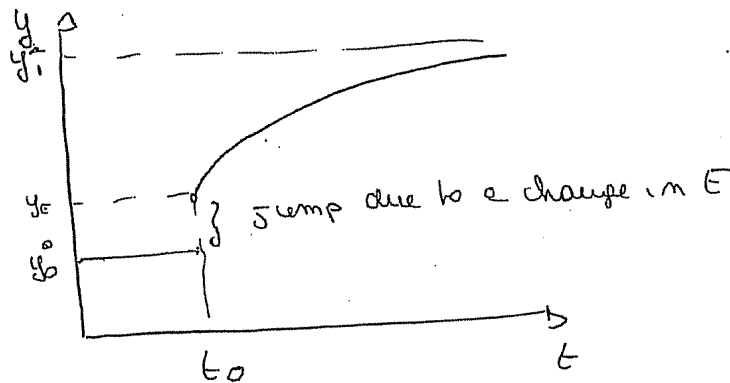 y
y₁*
y_E
} Jump due to a change in E
y₀*
t₀
t